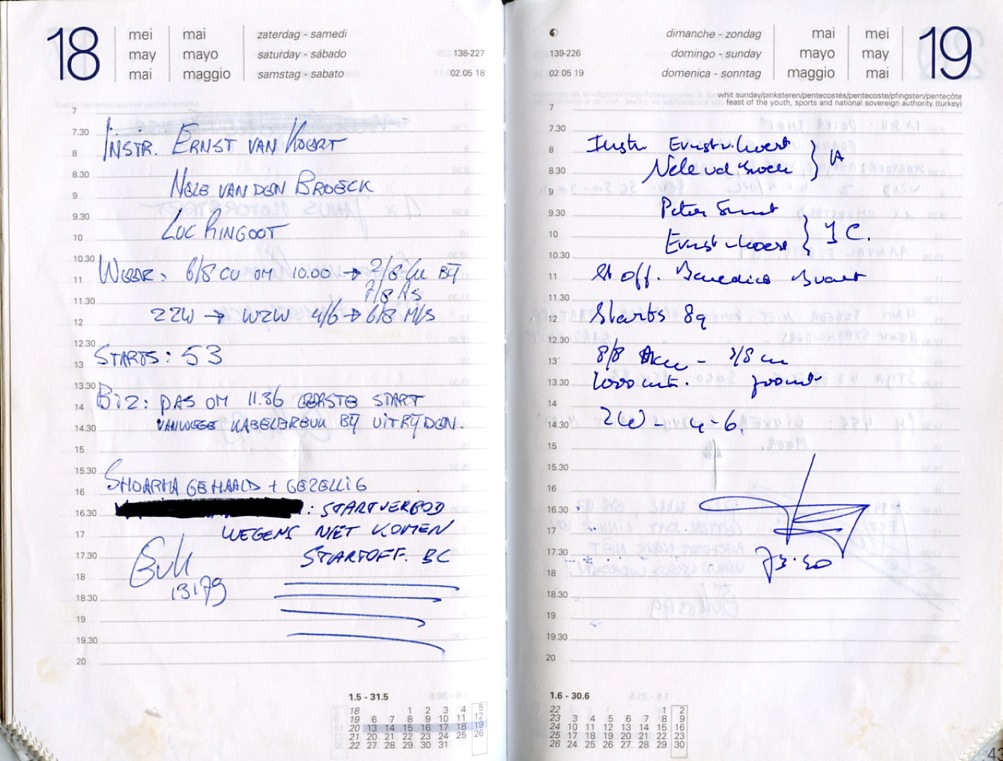 18
mei mai zaterdag - samedi
may mayo saturday - sábado 138-227
mai maggio samstag - sabato 02 05 18
7
7.30
8
8.30
9
9.30
10
10.30
11
11.30
12
12.30
13
13.30
14
14.30
15.30
16
16.30
17
17.30
18
18.30
19
19.30
20
INSTR. ERNST VAN KOERT
NELE VAN DEN BROECK
LUC RINGOOT
WEER: 6/8 CU OM 10.00 → 2/8 CU BIJ
7/8 AS
ZZW → WZW 4/6 → 6/8 M/S
STARTS: 53
BIZ: PAS OM 11.36 EERSTE START
VANWEGE KABELBREUK BIJ UITRIJDEN.
SHOARMA GEHAALD + GEZELLIG
: STARTVERBOD
WEGENS NIET KOMEN
STARTOFF. BC
13179
1.5 - 31.5
18 1 2 3 4 5
19 6 7 8 9 10 11 12
20 13 14 15 16 17 18 19
21 20 21 22 23 24 25 26
22 27 28 29 30 31
dimanche - zondag mai mei
139-226 domingo - sunday mayo may
02 05 19 domenica - sonntag maggio mai
19
whit sunday/pinksteren/pentecostés/pentecoste/pfingsten/pentecôte
feast of the youth, sports and national sovereign authority (turkey)
7
7.30
8
8.30
9
9.30
10
10.30
11
11.30
12
12.30
13
13.30
14
14.30
15.30
16
16.30
17
17.30
18
18.30
19
19.30
20
Instr Ernst v. koert
Nele vd Broeck } 1A
Peter
Ernst v koert } 1C.
St off. Benedict
Starts 89
8/8 - 3/8 cu
1000 mt.
Z(W) - 4-6.
73.50
1.6 - 30.6
22 1 2
23 3 4 5 6 7 8 9
24 10 11 12 13 14 15 16
25 17 18 19 20 21 22 23
26 24 25 26 27 28 29 30
43